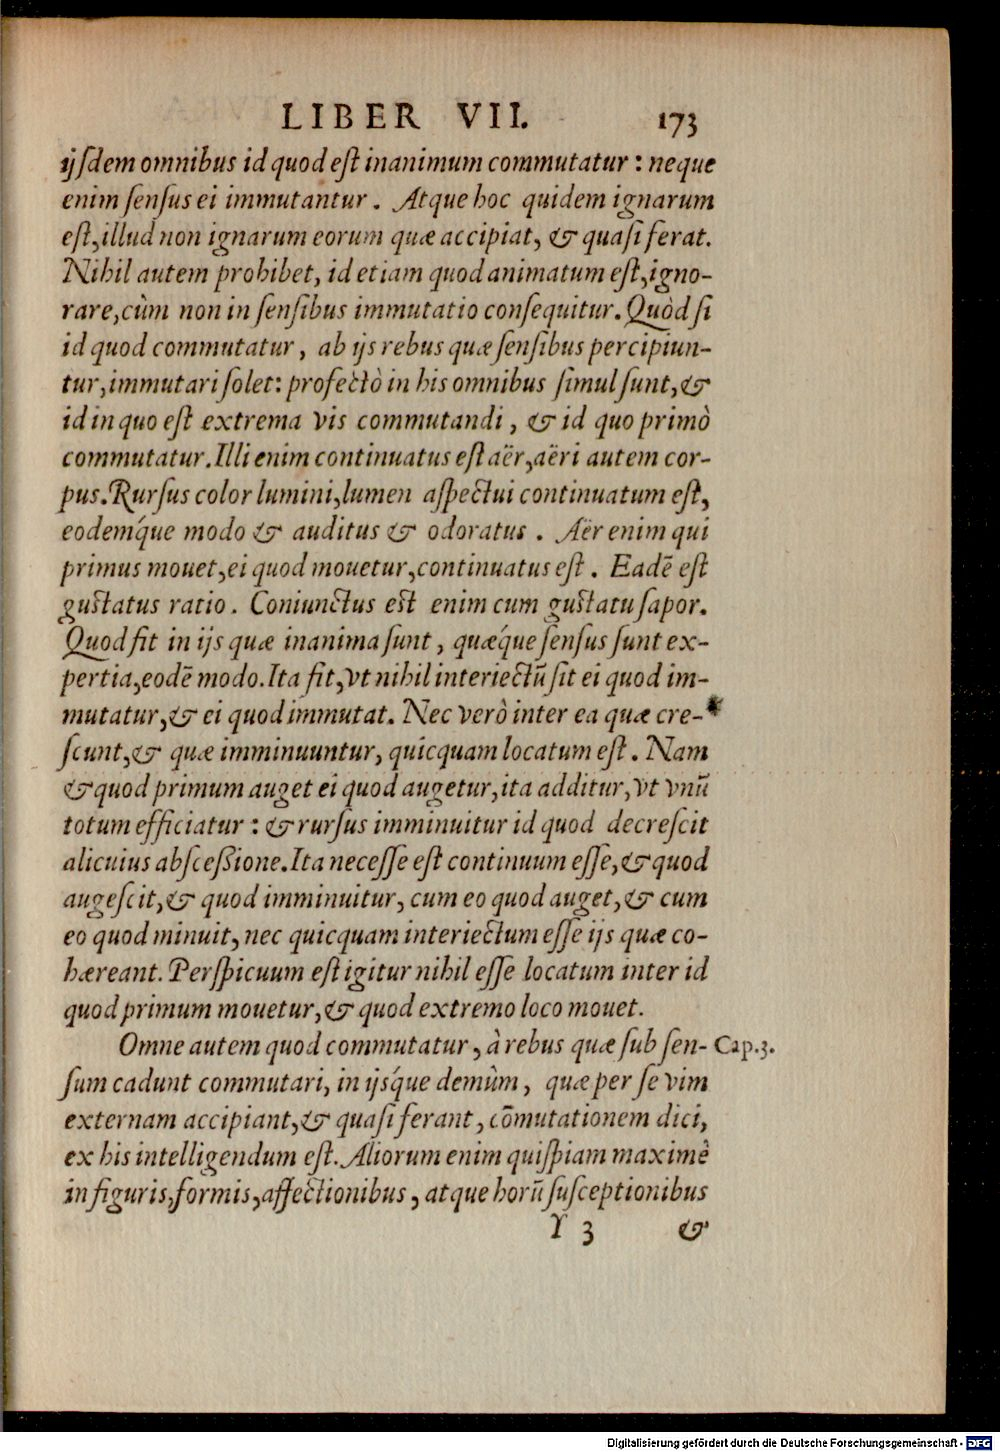 LIBER VII. 173
ijſdem omnibus id quod eſt inanimum commutatur : neque
enim ſenſus ei immutantur . Atque hoc quidem ignarum
eſt, illud non ignarum eorum quæ accipiat, & quaſi ferat.
Nihil autem prohibet, id etiam quod animatum eſt, igno-
rare, cùm non in ſenſibus immutatio conſequitur. Quòd ſi
id quod commutatur , ab ijs rebus quæ ſenſibus percipiun-
tur, immutari ſolet: profectò in his omnibus ſimul ſunt, &
id in quo eſt extrema vis commutandi , & id quo primò
commutatur. Illi enim continuatus eſt aër, aëri autem cor-
pus. Rurſus color lumini, lumen aſpectui continuatum eſt,
eodemq́ue modo & auditus & odoratus . Aër enim qui
primus mouet, ei quod mouetur, continuatus eſt . Eadē eſt
guſtatus ratio . Coniunctus eſt enim cum guſtatu ſapor.
Quod fit in ijs quæ inanima ſunt , quæq́ue ſenſus ſunt ex-
pertia, eodē modo. Ita fit, vt nihil interiectū ſit ei quod im-
mutatur, & ei quod immutat. Nec verò inter ea quæ cre-
ſcunt, & quæ imminuuntur, quicquam locatum eſt . Nam
& quod primum auget ei quod augetur, ita additur, vt vnū
totum efficiatur : & rurſus imminuitur id quod decreſcit
alicuius abſceßione. Ita neceſſe eſt continuum eſſe, & quod
augeſcit, & quod imminuitur, cum eo quod auget, & cum
eo quod minuit, nec quicquam interiectum eſſe ijs quæ co-
hæreant. Perſpicuum eſt igitur nihil eſſe locatum inter id
quod primum mouetur, & quod extremo loco mouet.
Omne autem quod commutatur , à rebus quæ ſub ſen- Cap.3.
ſum cadunt commutari, in ijsq́ue demùm , quæ per ſe vim
externam accipiant, & quaſi ferant , cōmutationem dici,
ex his intelligendum eſt. Aliorum enim quiſpiam maximè
in figuris, formis, affectionibus , atque horū ſuſceptionibus
Y 3 &
Digitalisierung gefördert durch die Deutsche Forschungsgemeinschaft - DFG